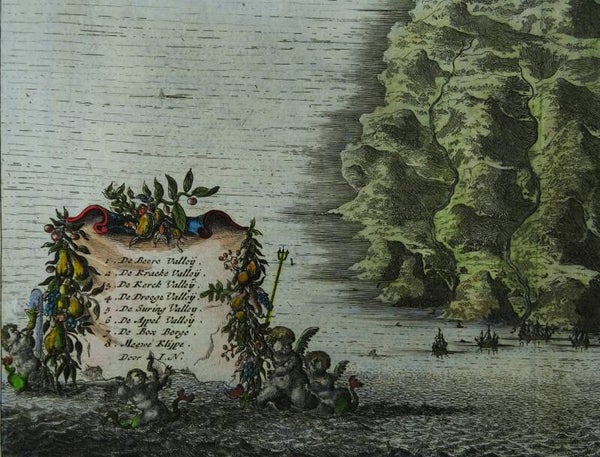 1. De Beere Valleÿ.
2. De Kracke Valleÿ.
3. De Kerck Valleÿ.
4. De Drooge Valleÿ.
5. De Suring Valleÿ.
6. De Appel Valleÿ
De Box Berge.
8. Meeuwe Klype.
Door I.N.